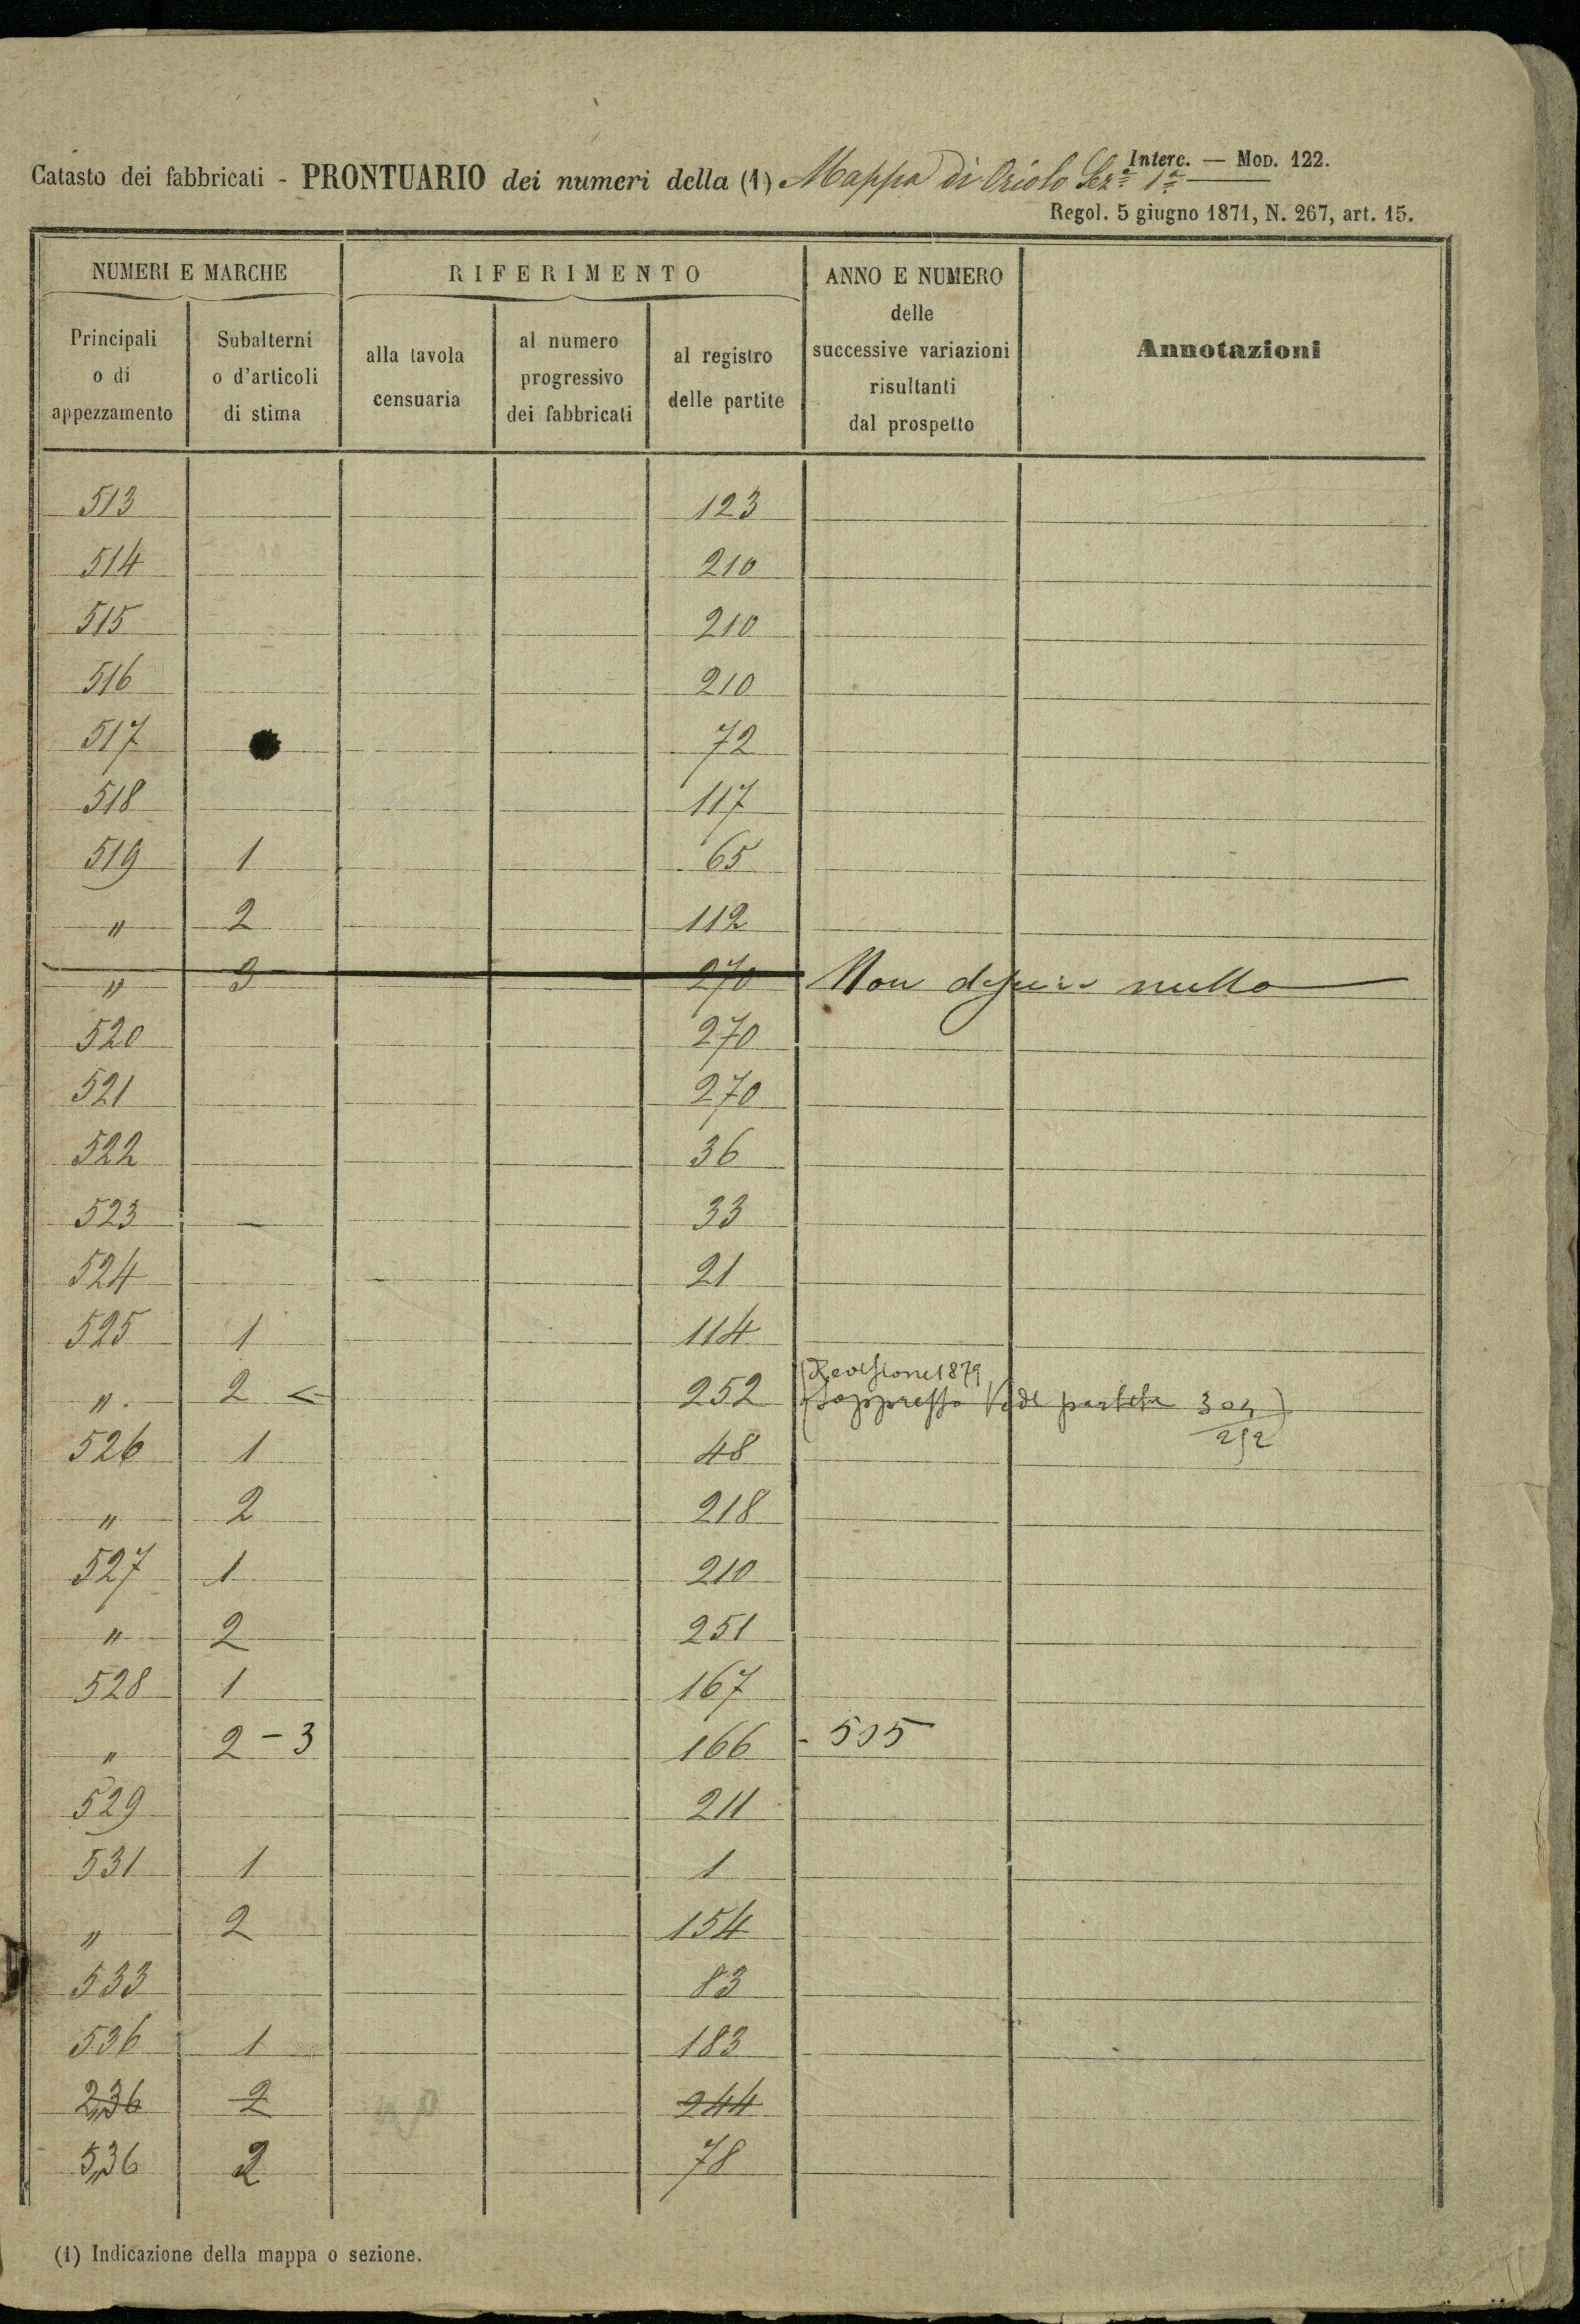 Interc. — Mod. 122.
Catasto dei fabbricati - PRONTUARIO dei numeri della (1) Mappa di Oriolo Sez.e 1.a
Regol. 5 giugno 1871, N. 267, art. 15.
NUMERI E MARCHE RIFERIMENTO ANNO E NUMERO delle successive variazioni risultanti dal prospetto Annotazioni
Principali o di appezzamento Subalterni o d'articoli di stima alla tavola censuaria al numero progressivo dei fabbricati al registro delle partite
513 123
514 210
515 210
516 210
517 72
518 117
519 1 65
" 2 112
" 3 270 Non nulla
520 270
521 270
522 36
523 — 33
524 21
525 1 114
Revisione 1879
" . 2 < 252 Soppressa Vede partita 304
252
526 1 48
" 2 218
527 1 210
" 2 251
528 1 167
" 2 - 3 166 - 505
529 211
531 1 1
" 2 154
533 83
536 1 183
236 2 244
536 2 78
(1) Indicazione della mappa o sezione.